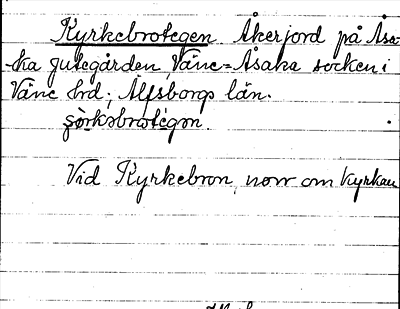 Kyrkebrotegen Åkerjord på Åsa-
ka Jutegården, Väne-Åsaka socken i
Väne hrd; Älfsborgs län.
Vid Kyrkebron, norr om kyrkan